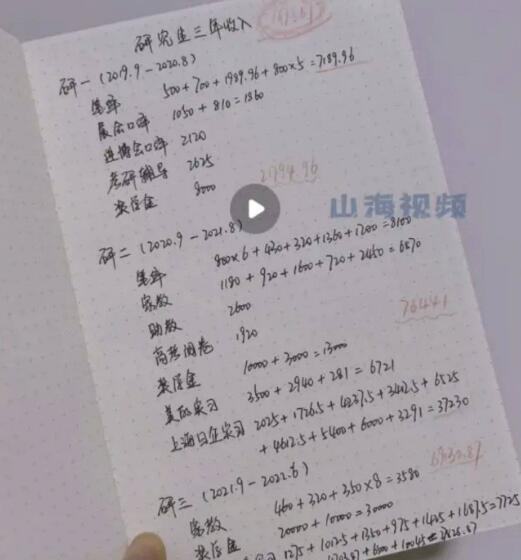 研究生三年收入
研一 (2019.9-2020.8)
笔译 500+700+1989.96+800×5=7189.96
展会口译 1050+810=1860
进博会口译 2120
考研辅导 2625
奖学金 8000
21794.96
山海视频
研二 (2020.9-2021.8)
笔译 800×6+430+320+1360+1200=8100
家教 1180+920+1600+720+2450=6870
助教 2600
高考阅卷 1920
76441
奖学金 10000+3000=13000
美的实习 3500+2940+281=6721
上海日企实习 2025+1726.5+4237.5+3412.5+6525
+4612.5+5400+6000+3291=37230
研三 (2021.9-2022.6)
家教 460+320+350×8=3580
奖学金 20000+10000=30000
实习 1275+1012.5+1350+975+1425+1687.5=7725